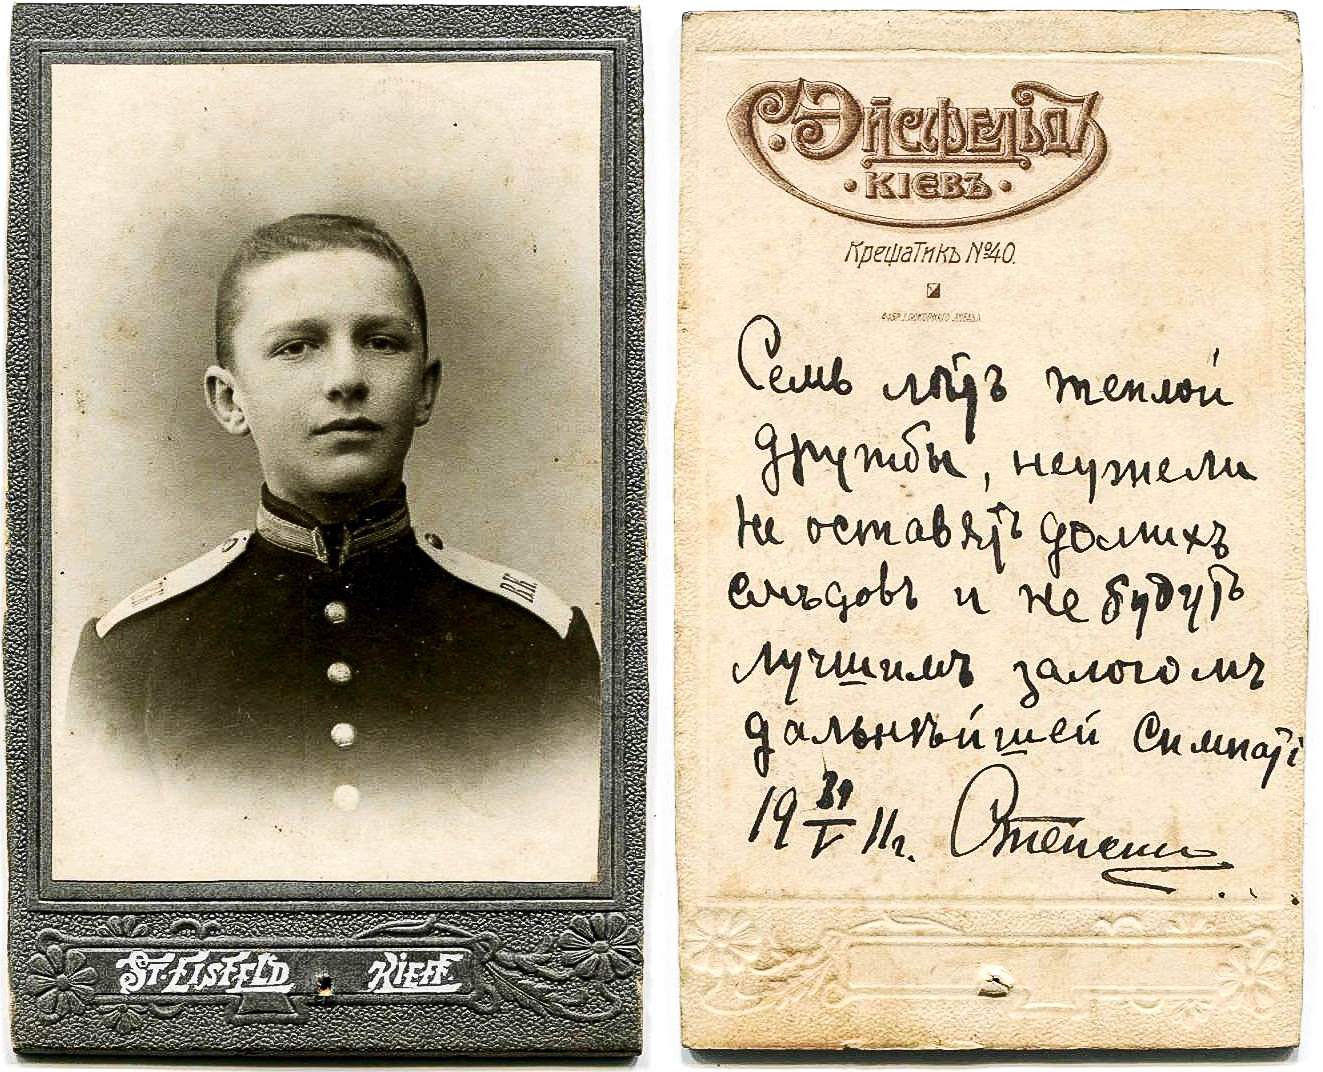 В.К.
St. EISFELD KIEFF
С. Эйсфельдъ
КІЕВЪ
Крещатикъ №40.
Семь лѣтъ теплой
дружбы, неужели
не оставятъ долгихъ
слѣдовъ и не будутъ
лучшимъ залогомъ
дальнѣйшей симпаті
19 31/V 11г.